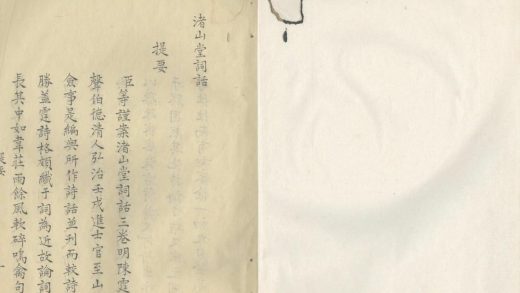 渚山堂詞話
提要
臣等謹案渚山堂詞話三卷明陳霆
聲伯德清人弘治壬戌進士官至山
僉事是編與所作詩話並刊而較詩
勝蓋霆詩格頗纖于詞為近故論詞
長其中如韋莊雨餘風軟碎鳴禽句
提要